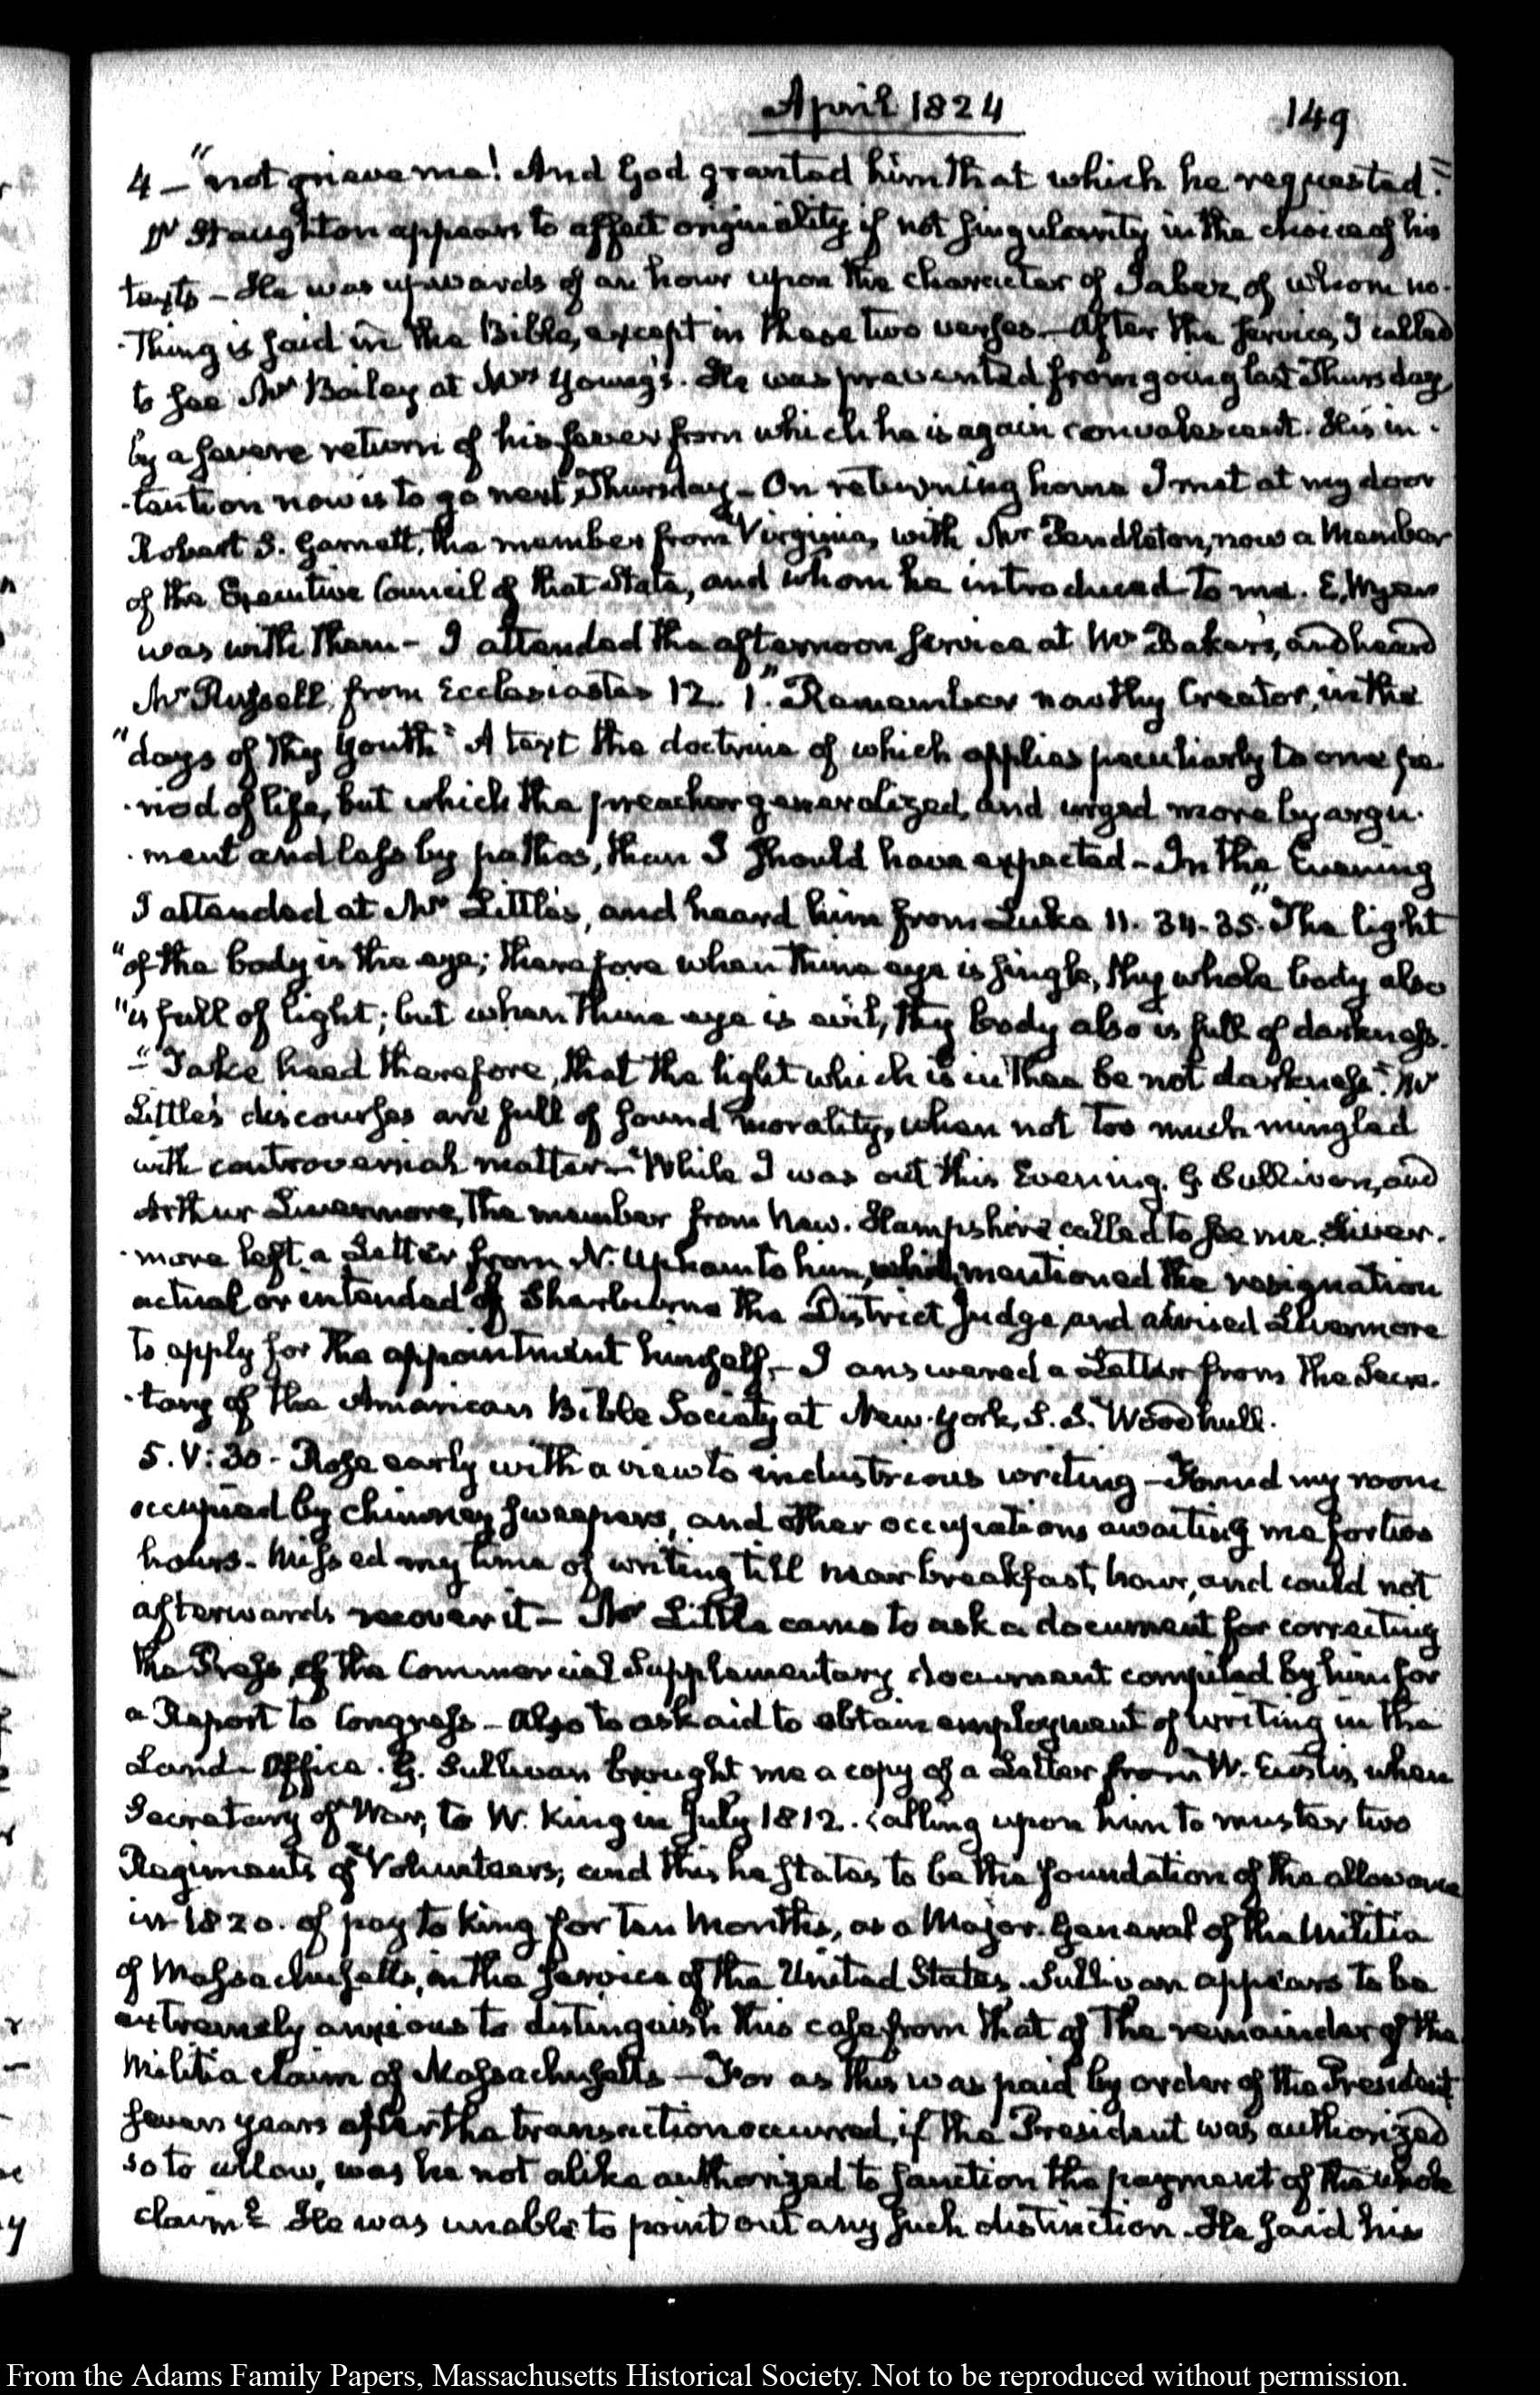 April 1824
149
4 — "not grieve me! And God granted him that which he requested."
Dr Staughton appears to affect originality if not singularity in the choice of his
texts — He was upwards of an hour upon the character of Jabez, of whom no-
-thing is said in the Bible, except in these two verses — After the service, I called
to see Mr Bailey at Mrs Young's. He was prevented from going last Thursday,
by a severe return of his fever from which he is again convalescent. His in-
-tention now is to go next Thursday — On returning home I met at my door
Robert S. Garnett, the member from Virginia, with Mr Pendleton, now a Member
of the Executive Council of that State, and whom he introduced to me. E. Wyer
was with them — I attended the afternoon service at Mr Baker's, and heard
Mr Russell, from Ecclesiastes 12. 1. "Remember now thy Creator, in the
"days of thy youth" A text the doctrine of which applies peculiarly to one pe-
-riod of life, but which the preacher generalized, and urged more by argu-
-ment and less by pathos, than I should have expected — In the Evening
I attended at Mr Little's, and heard him from Luke 11. 34-35. "The light
"of the body is the eye; therefore when thine eye is single, thy whole body also
"is full of light; but when thine eye is evil, thy body also is full of darkness.
— "Take heed therefore, that the light which is in thee be not darkness." Mr
Little's discourses are full of sound morality, when not too much mingled
with controversial matter — While I was out this Evening. G Sullivan, and
Arthur Livermore, the member from New-Hampshire called to see me. Liver-
-more left a Letter from N. Upham to him, which mentioned the resignation
actual or intended of Sherburne the District Judge, and advised Livermore
to apply for the appointment himself. — I answered a Letter from the Secre-
-tary of the American Bible Society at New-York, S. S. Woodhull.
5. V:30 - Rose early with a view to industrious writing — Found my room
occupied by chimney sweepers, and other occupations awaiting me for two
hours — Missed my time of writing till near breakfast hour, and could not
afterwards recover it — Mr Little came to ask a document for correcting
the Press, of the Commercial Supplementary document compiled by him for
a Report to Congress — Also to ask aid to obtain employment of writing in the
Land-Office. G. Sullivan brought me a copy of a Letter from W. Eustis, when
Secretary of War, to W. King in July 1812. calling upon him to muster two
Regiments of Volunteers; and this he states to be the foundation of the allowance
in 1820. of pay to King for ten Months, as a Major-General of the Militia
of Massachusetts, in the service of the United States. Sullivan appears to be
extremely anxious to distinguish this case from that of the remainder of the
Militia claim of Massachusetts — For as this was paid by order of the President
seven years after the transaction occurred, if the President was authorized
so to allow, was he not alike authorized to sanction the payment of the whole
claim? He was unable to point out any such distinction. He said his
From the Adams Family Papers, Massachusetts Historical Society. Not to be reproduced without permission.